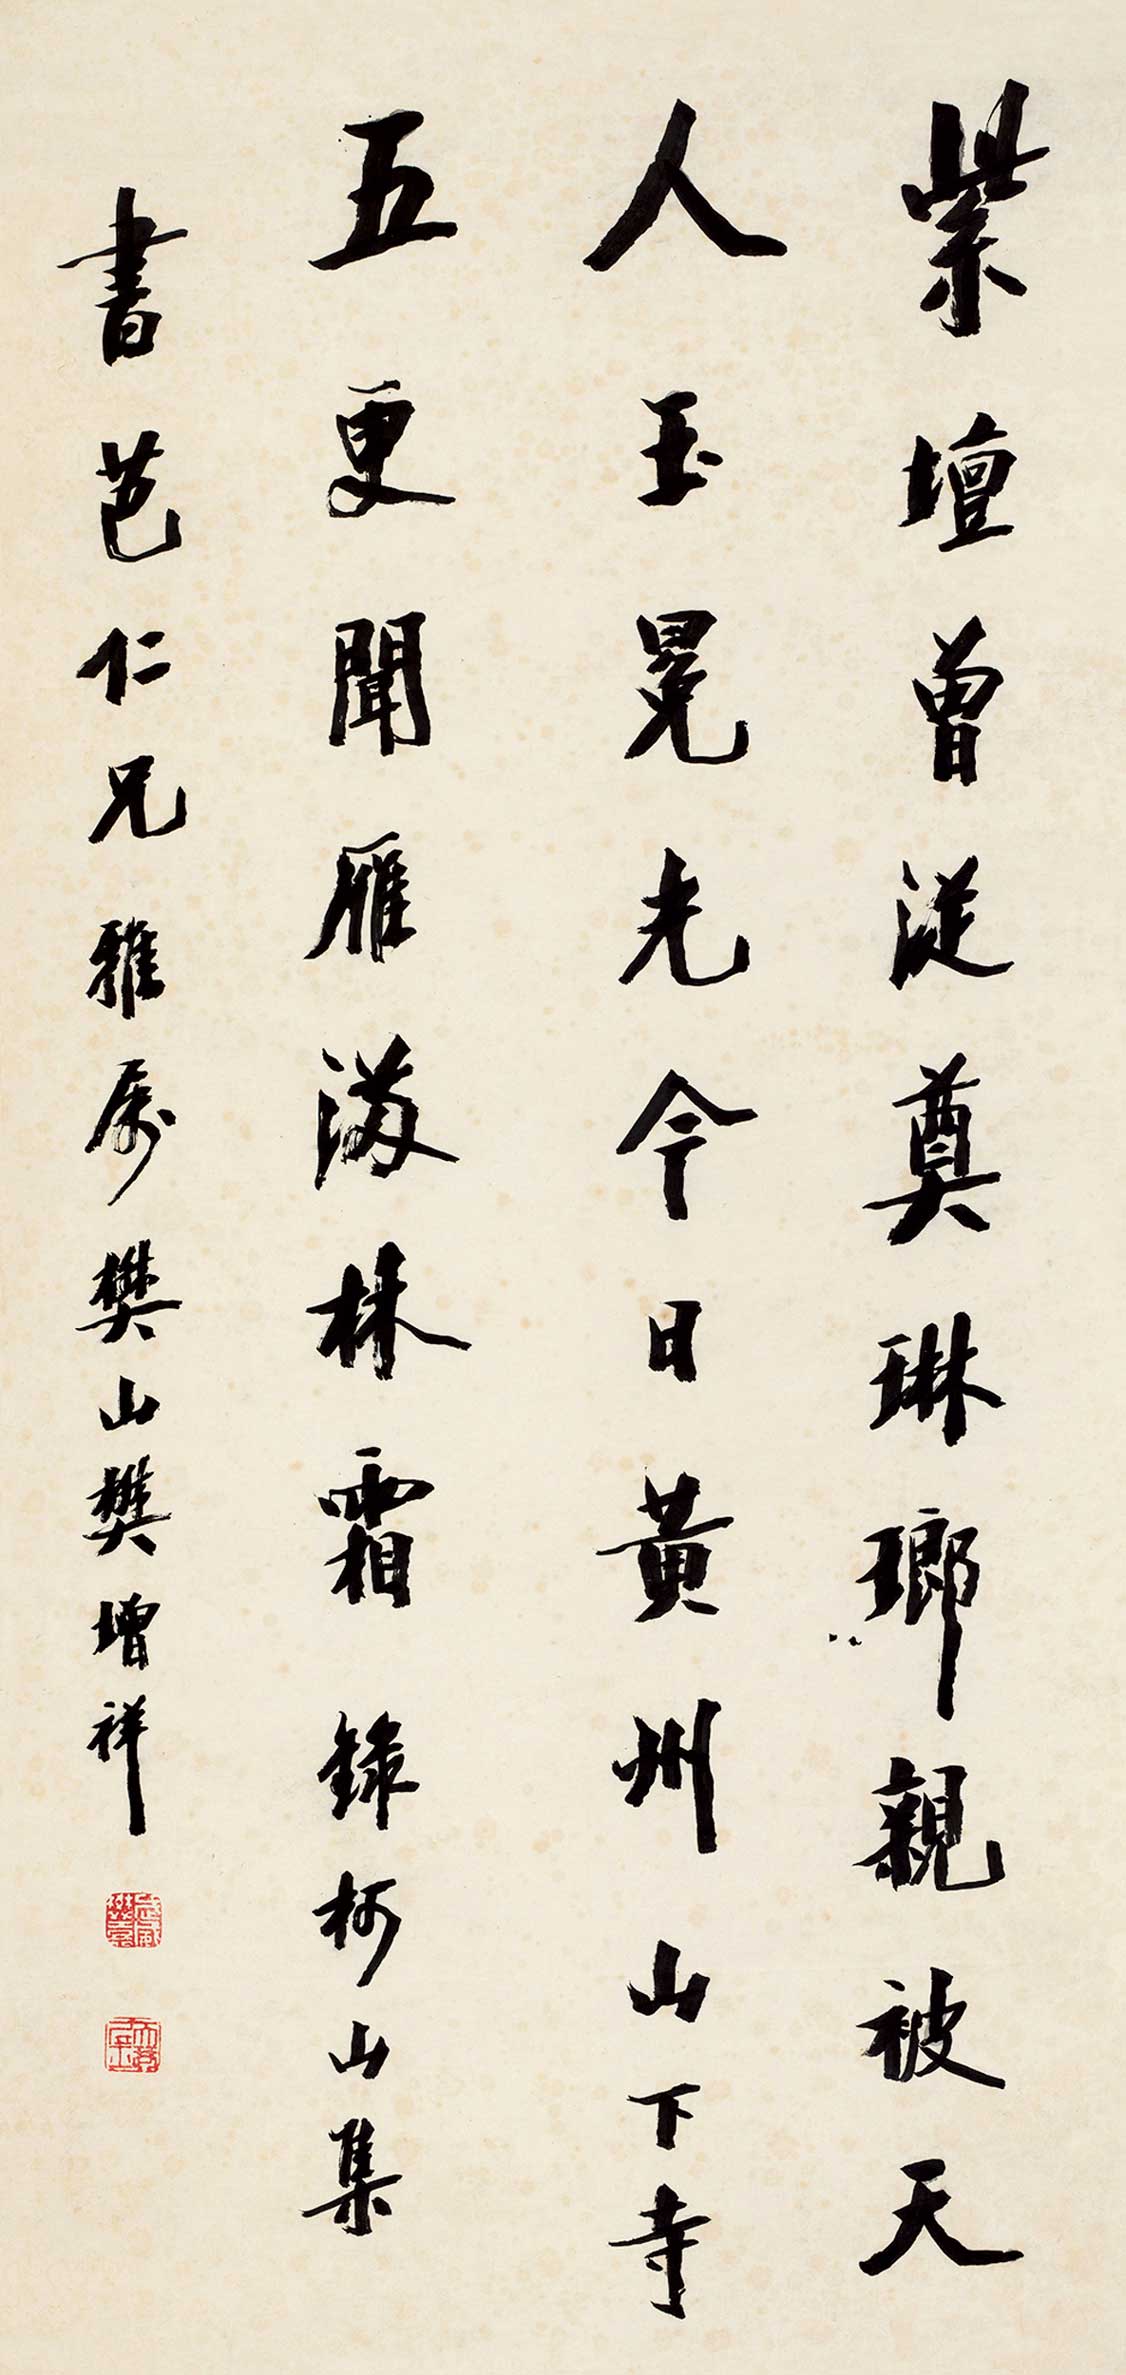 紫壇曾從奠琳瑯親被天
人玉冕光今日黃州山下寺
五更聞雁滿林霜錄柯山集
書芑仁兄雅属樊山樊增祥